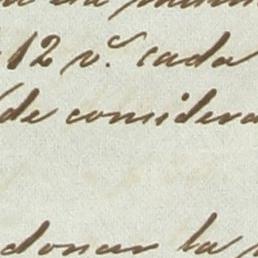 12 v.^s cada
de considera
donar la